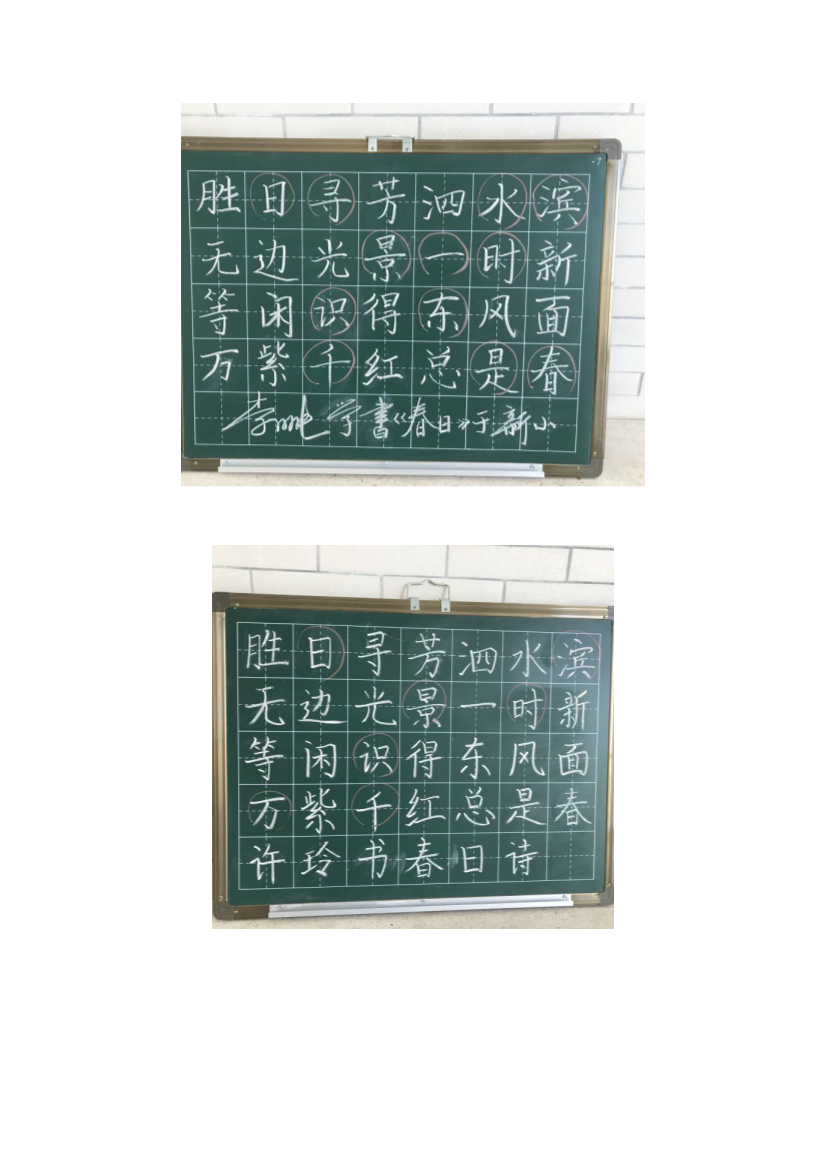 胜日寻芳泗水滨
无边光景一时新
等闲识得东风面
万紫千红总是春
学書《春日》于新小
胜日寻芳泗水滨
无边光景一时新
等闲识得东风面
万紫千红总是春
许玲书春日诗